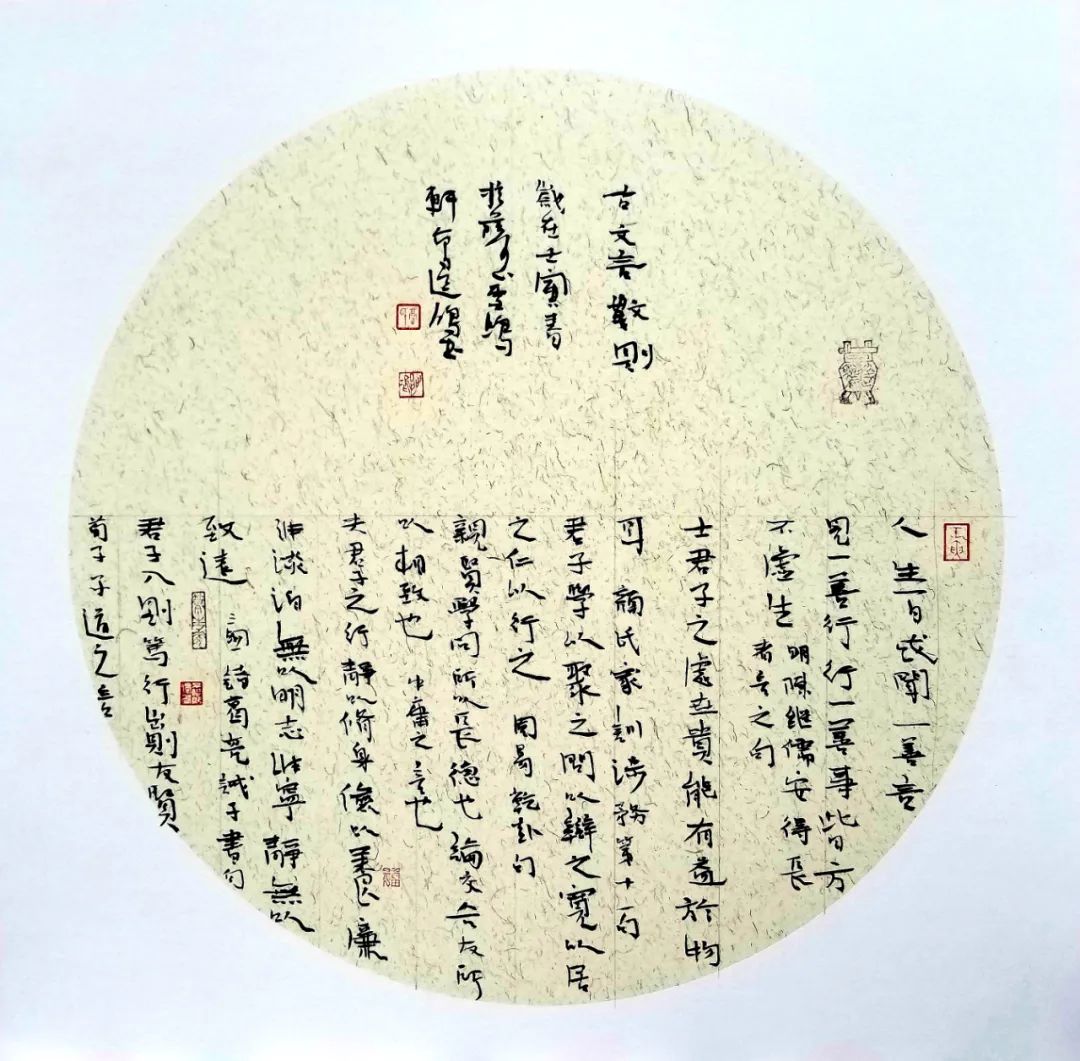 人生一日或聞一善言
見一善行行一善事此日方
不虛生
明陳繼儒安得長
者言之句
士君子之處世貴能有益於物
耳 顏氏家訓涉務第十一句
君子學以聚之問以辯之寬以居
之仁以行之 周易乾卦句
親賢學問所以長德也論交合友所
以相致也 中庸之言也
夫君子之行靜以脩身儉以養
非澹泊無以明志非寧靜無以
致遠 諸葛亮誡子書句
君子入則篤行出則友賢
荀子子道之言
古文言數則
歲在壬寅書
於
軒